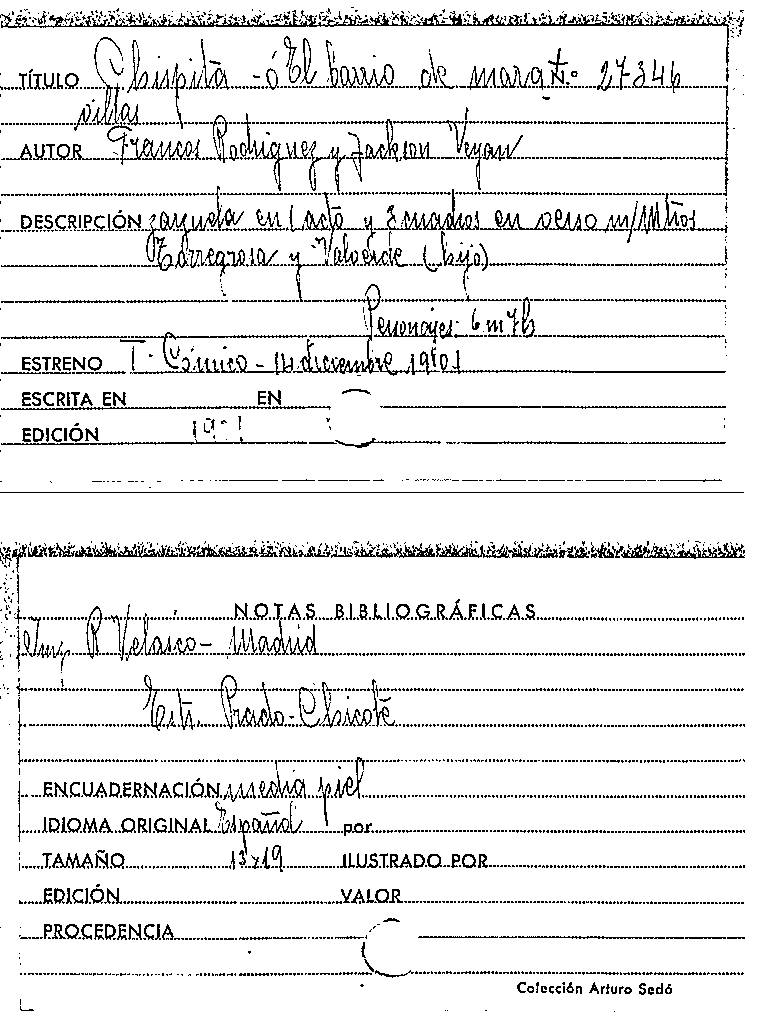 TÍTULO Chispita - ó El barrio de mara N.º 27346
villas
AUTOR Francos Rodriguez y Jackson Veyan
DESCRIPCIÓN zarzuela en 1 acto y 3 cuadros en verso m/ Mtros
Torregrosa y Valverde (hijo)
Personajes: 6 m 7 h
ESTRENO T. Cómico - 14 diciembre 1901
ESCRITA EN EN
EDICIÓN
NOTAS BIBLIOGRÁFICAS
Imp R Velasco - Madrid
Estr. Prado-Chicote
ENCUADERNACIÓN media piel
IDIOMA ORIGINAL Español por
TAMAÑO 13x19 ILUSTRADO POR
EDICIÓN VALOR
PROCEDENCIA
Colección Arturo Sedó